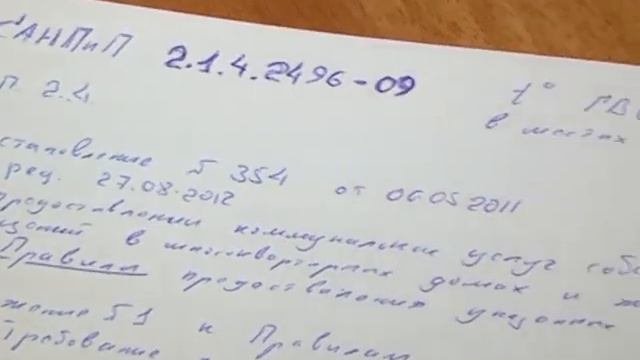 САНПиП 2.1.4.2496-09
П. 2.4
t° ГВ
в местах
становление №354 от 06.05.2011
ред. 27.08.2012
предоставлении коммунальных услуг собс
щений в многоквартирных домах и ж
Правила предоставления указанных
жение №1 к Правилам
Требование